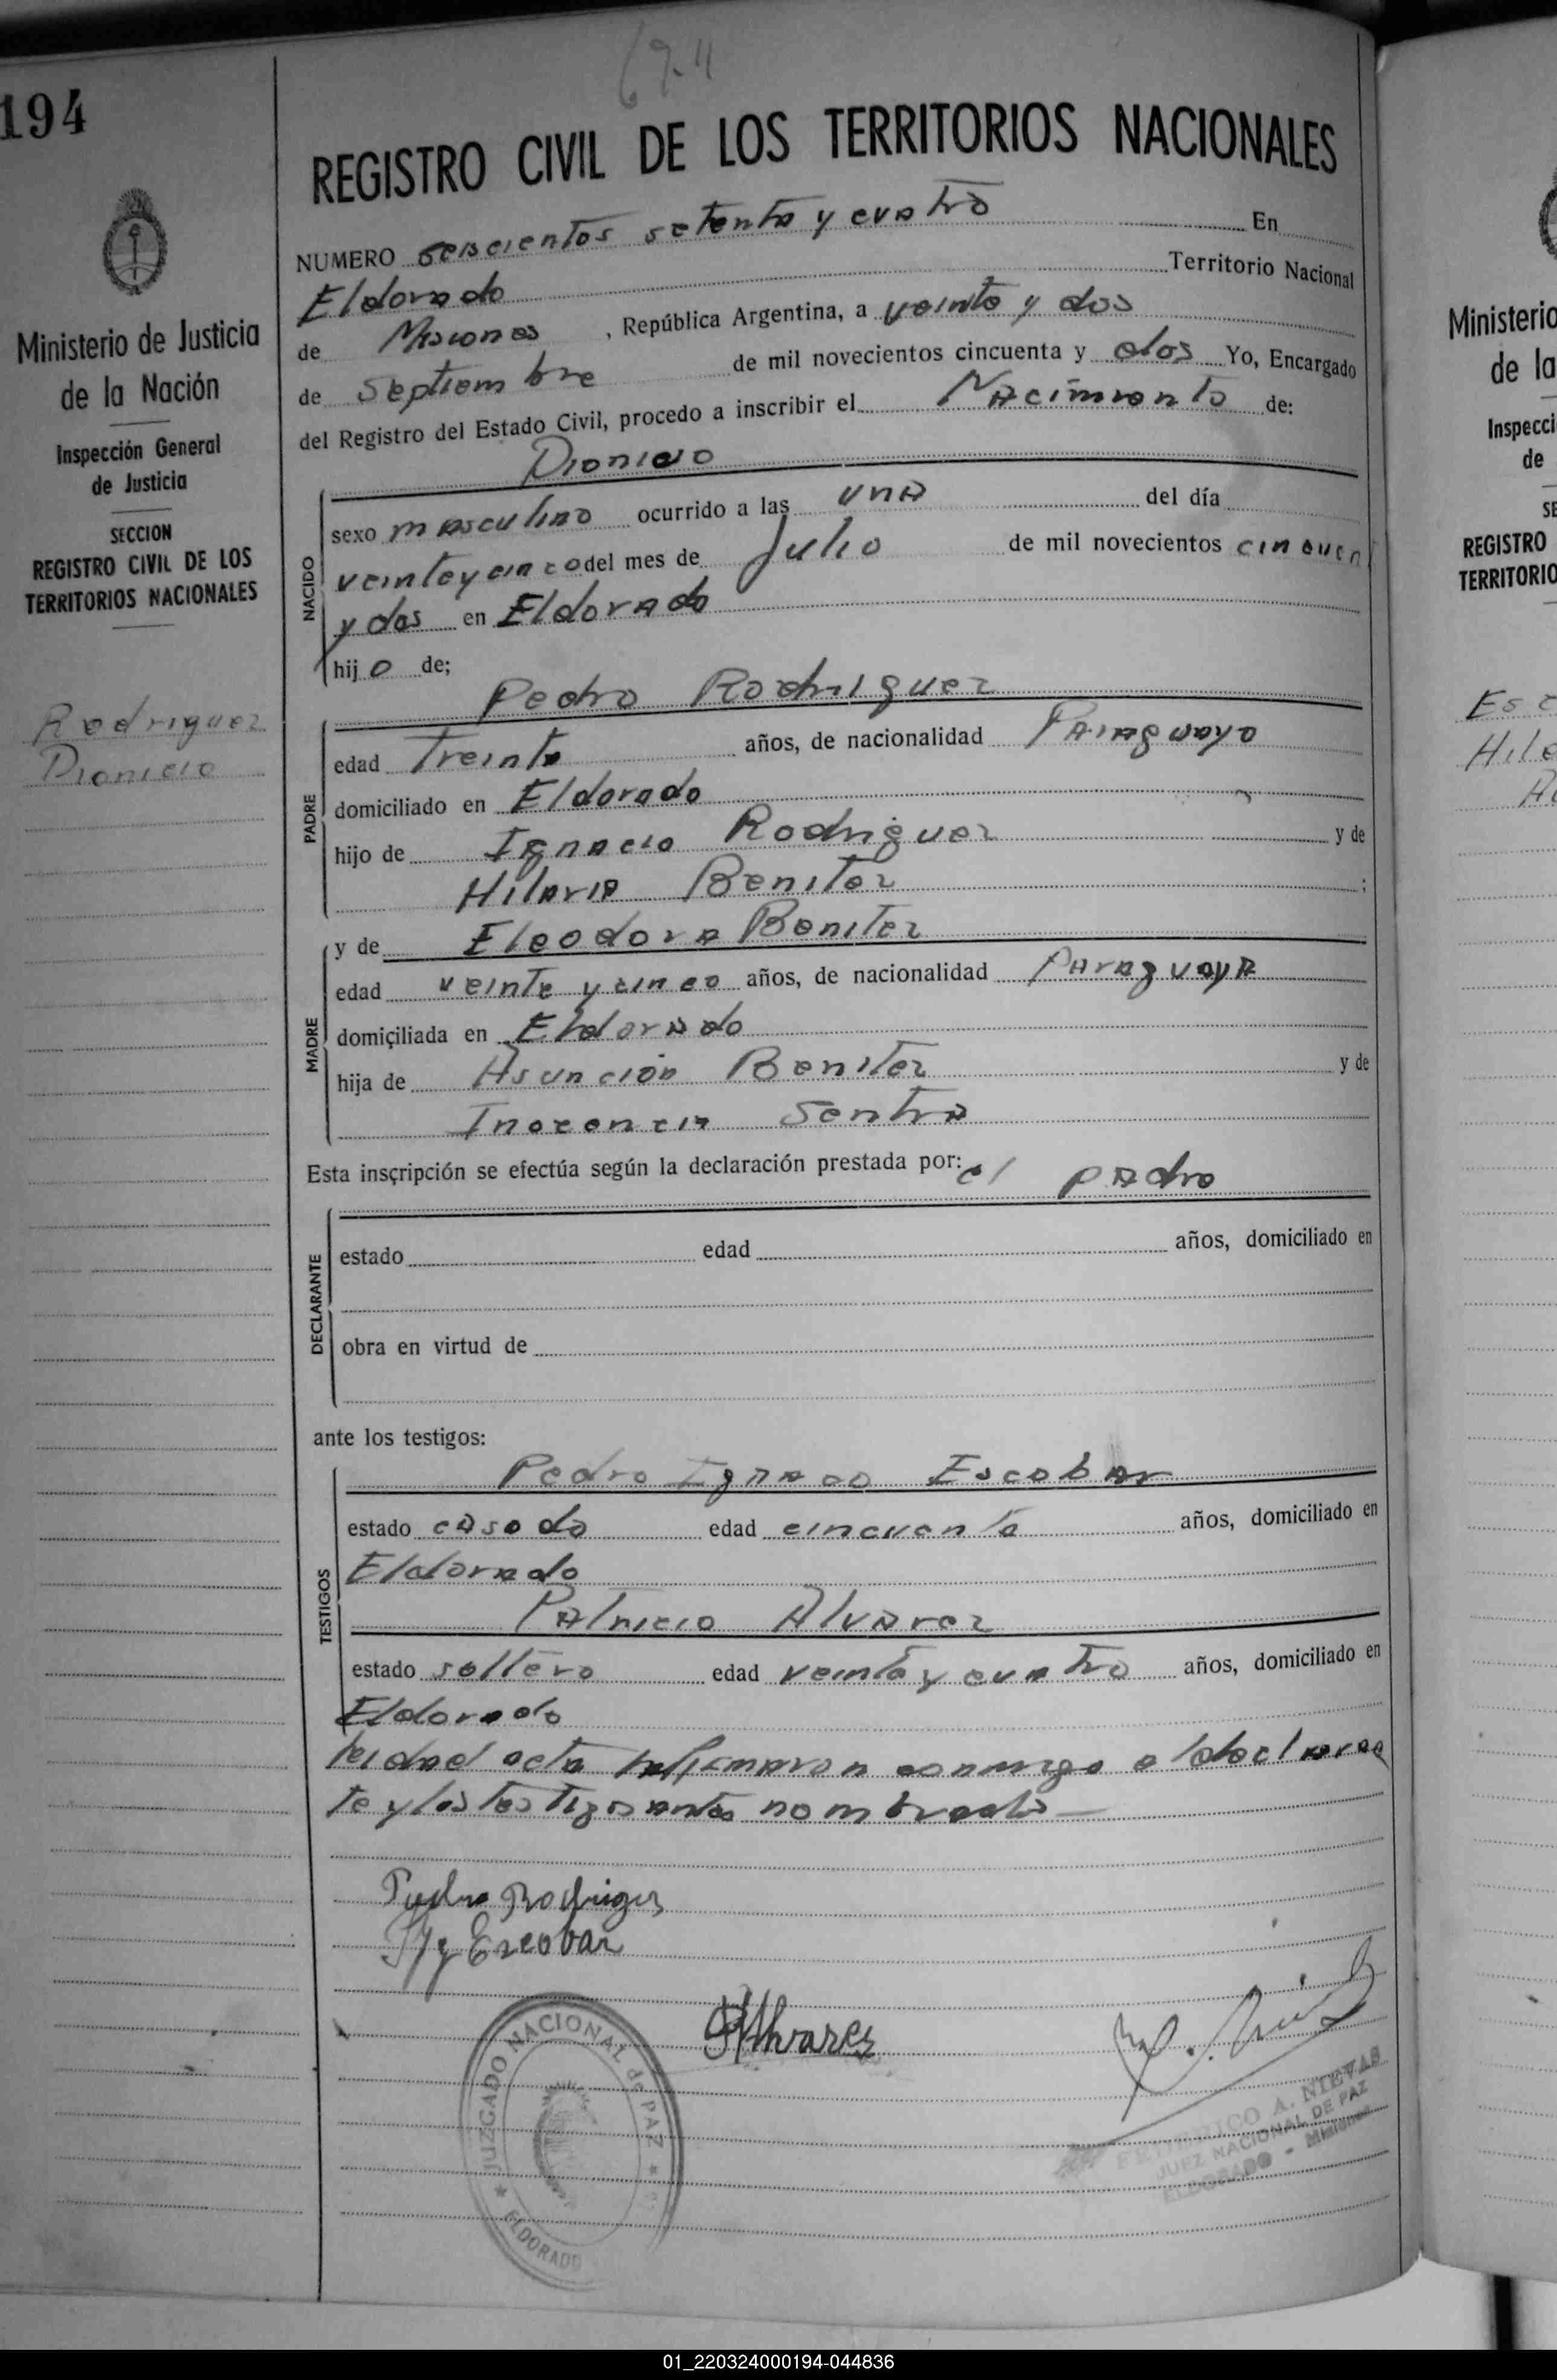 674
194
REGISTRO CIVIL DE LOS TERRITORIOS NACIONALES
NUMERO seiscientos setenta y cuatro En
Eldorado Territorio Nacional
de Misiones, República Argentina, a veinte y dos
de septiembre de mil novecientos cincuenta y dos Yo, Encargado
del Registro del Estado Civil, procedo a inscribir el Nacimiento de:
Dionicio
NACIDO
sexo masculino ocurrido a las una del día
veinteycinco del mes de Julio de mil novecientos cincuen
y dos en Eldorado
hijo de;
Pedro Rodriguez
PADRE
edad Treinta años, de nacionalidad Paraguayo
domiciliado en Eldorado
hijo de Ignacio Rodriguez y de
Hilaria Benitez ;
y de Eleodora Benitez
MADRE
edad veinte y cinco años, de nacionalidad Paraguaya
domiciliada en Eldorado
hija de Asuncion Benitez y de
Inocencia
Esta inscripción se efectúa según la declaración prestada por: el padre
DECLARANTE
estado edad años, domiciliado en
obra en virtud de
ante los testigos:
Pedro Ignacio Escobar
TESTIGOS
estado casado edad cincuenta años, domiciliado en
Eldorado
Patricio Alvarez
estado soltero edad veinte y cuatro años, domiciliado en
Eldorado
leida el acta la firmaron conmigo el declaran
te y los testigos antes nombrados
Pedro Rodriguez
Escobar
Alvarez
JUZGADO NACIONAL de PAZ
ELDORADO
FEDERICO A. NIEVAS
JUEZ NACIONAL DE PAZ
ELDORADO - Misiones
Ministerio de Justicia
de la Nación
Inspección General
de Justicia
SECCION
REGISTRO CIVIL DE LOS
TERRITORIOS NACIONALES
Rodriguez
Dionicio
Ministerio
de la
Inspecci
de
SE
REGISTRO
TERRITORIO
Esc
Hila
01_220324000194-044836